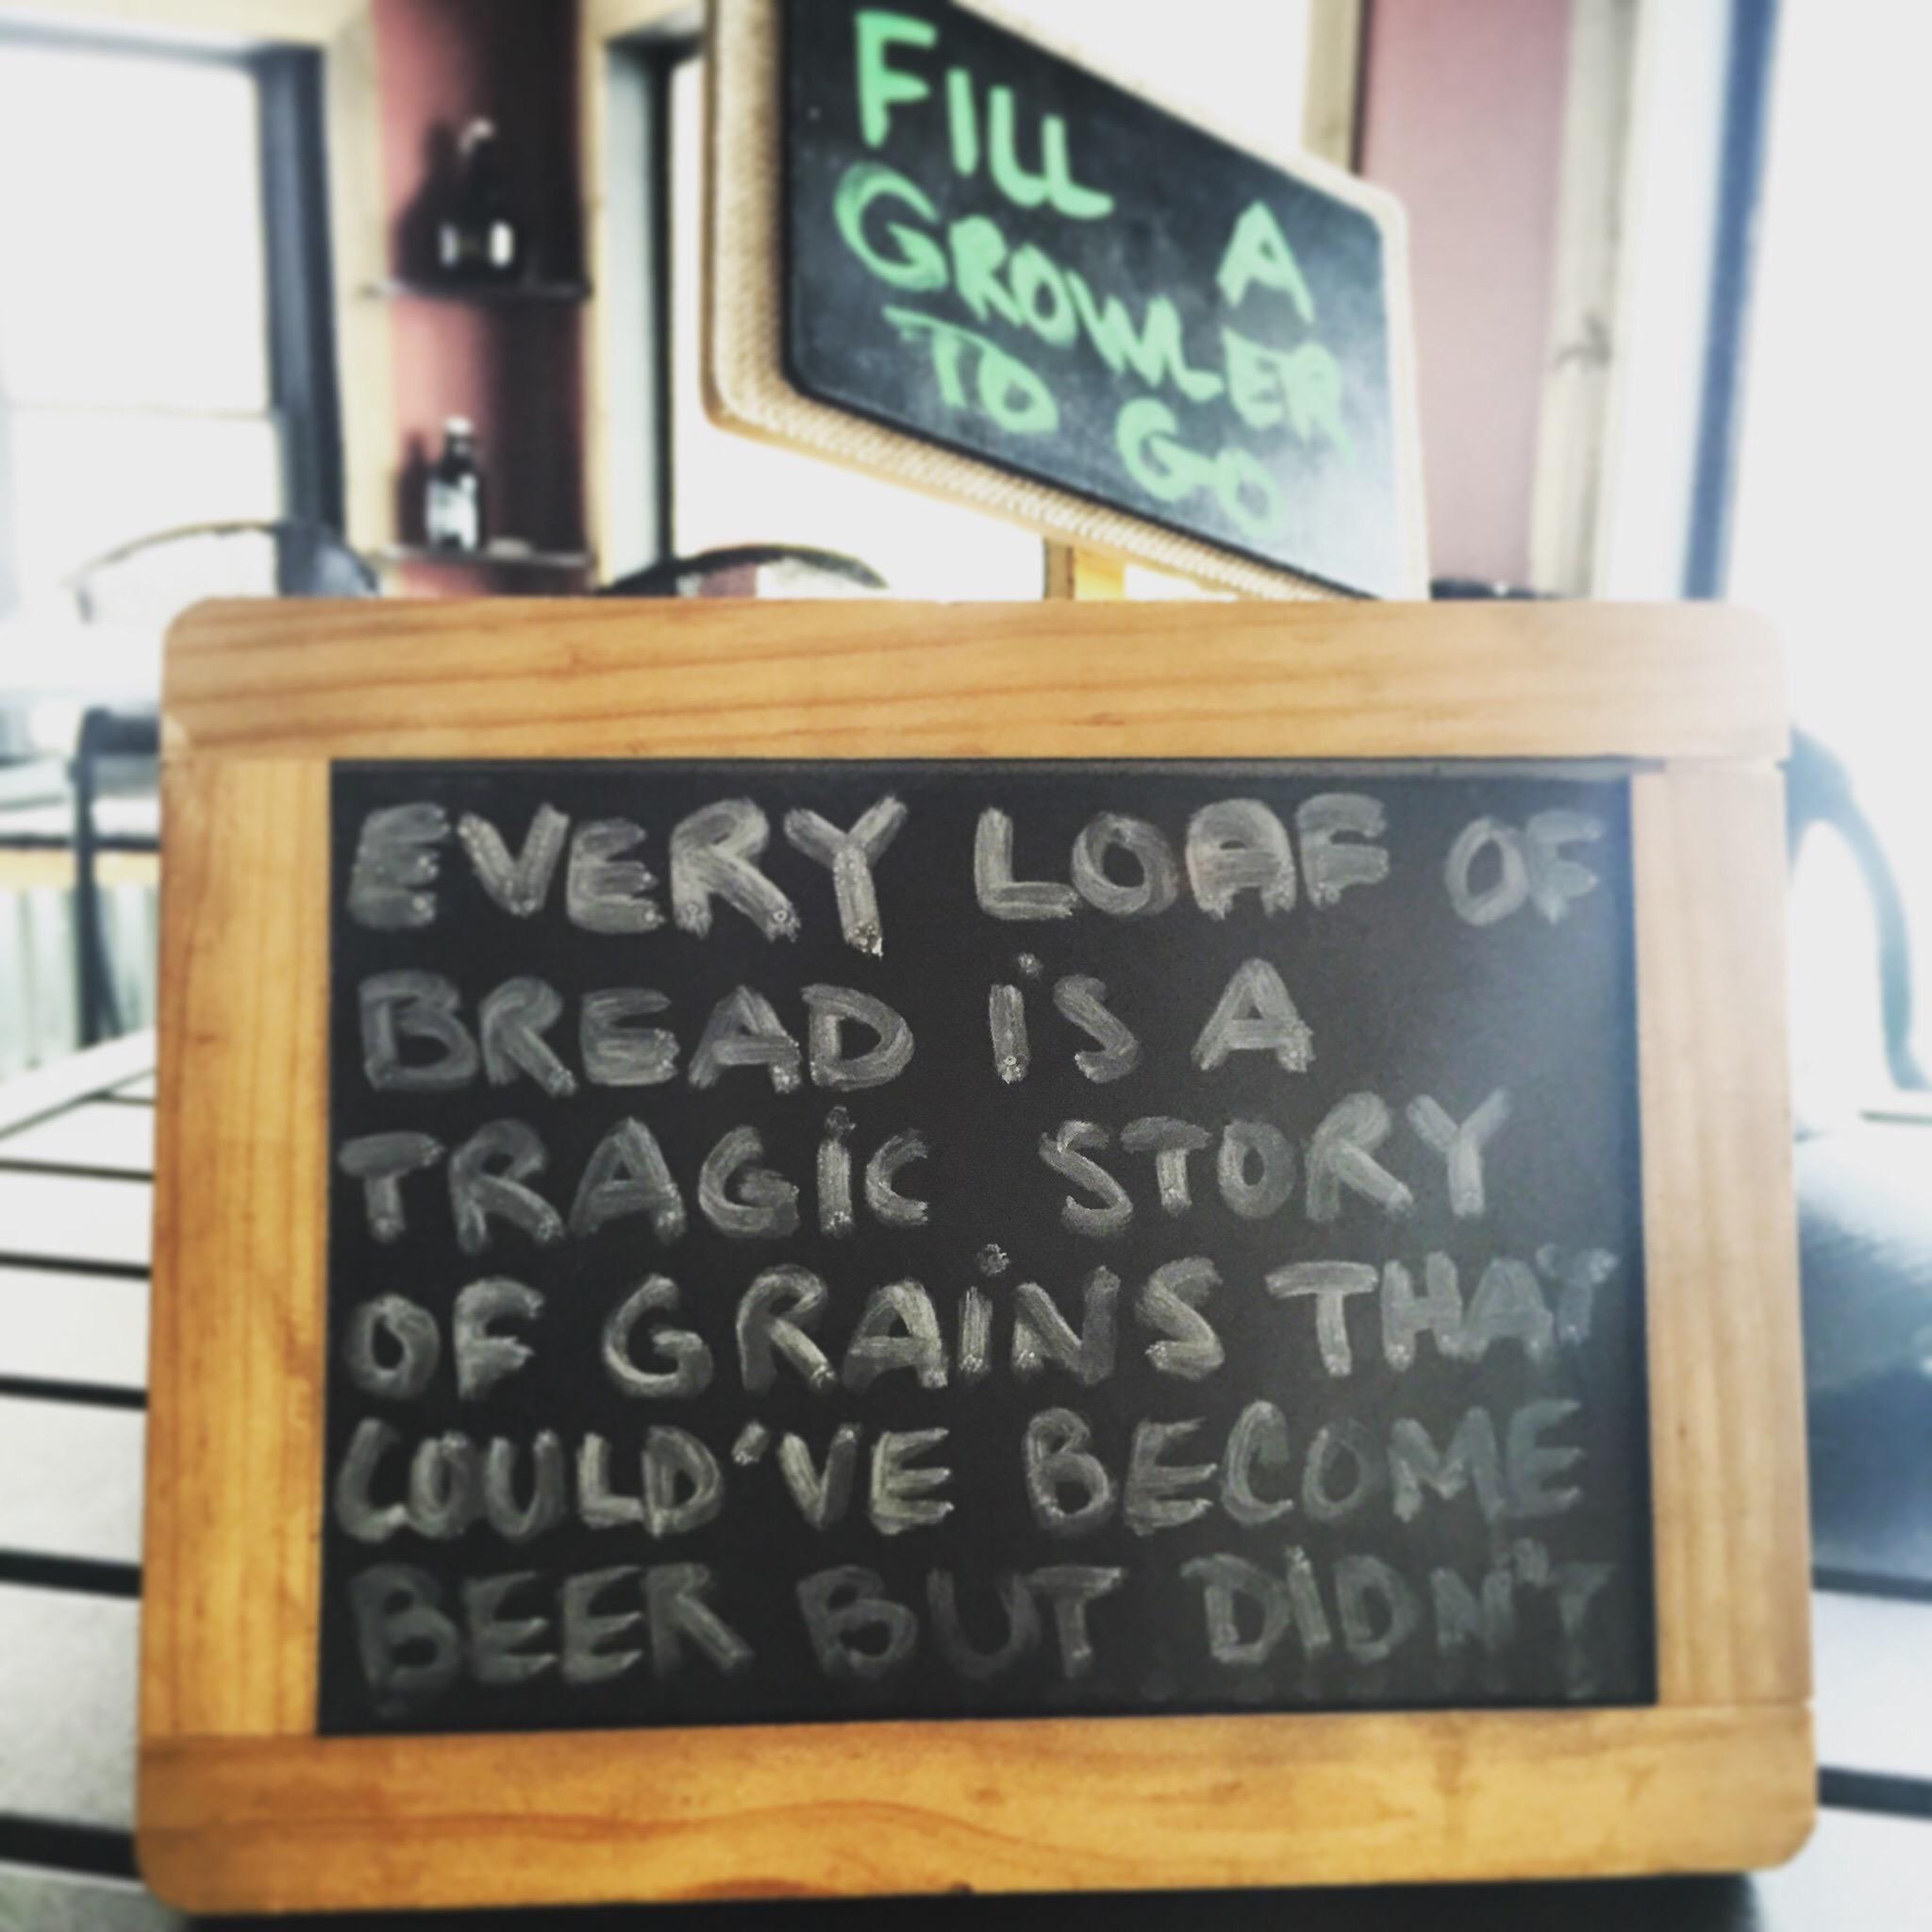 FILL A
GROWLER
TO GO
EVERY LOAF OF
BREAD iS A
TRAGiC STORY
OF GRAiNS THAT
COULD'VE BECOME
BEER BUT DiDN'T